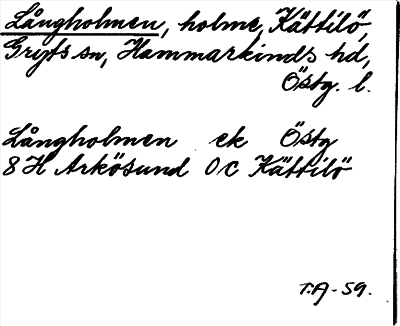 Långholmen, holme, Kättilö,
Gryts sn, Hammarkinds hd,
Östg. l.
Långholmen ek Östg
8 H Arkösund 0 c Kättilö
T.A-59.